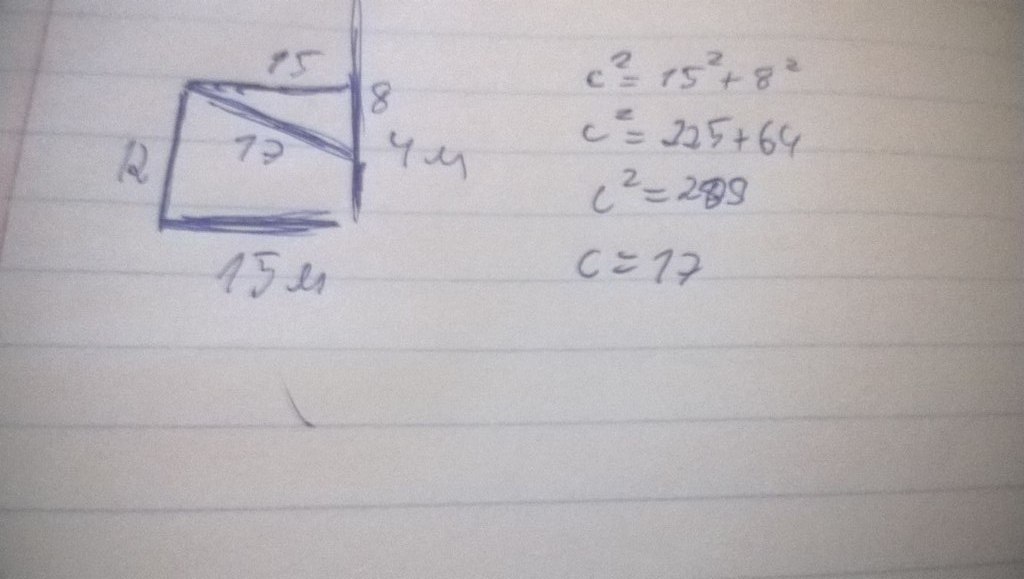 15
8
12
17
4 м
15 м
c² = 15² + 8²
c² = 225 + 64
c² = 289
c = 17